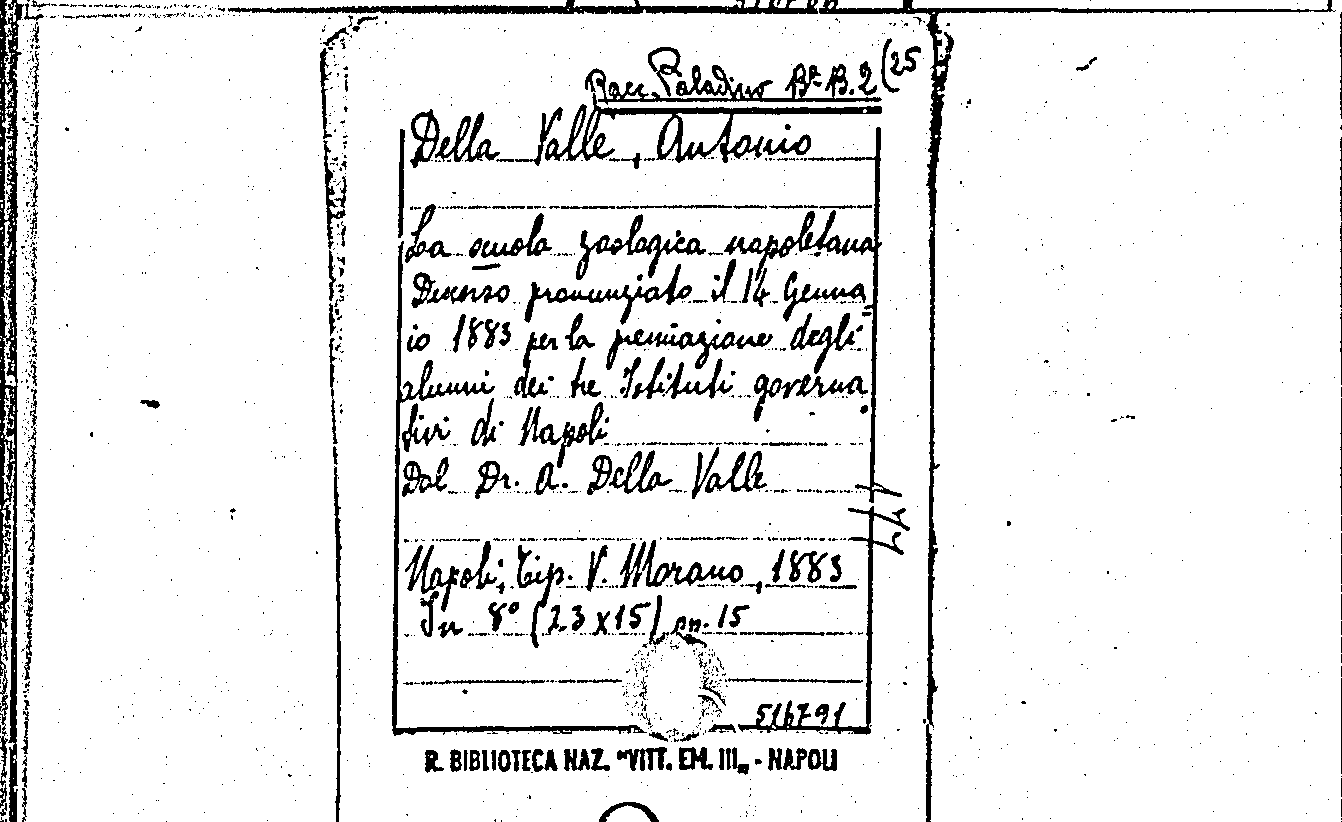 Racc. Paladino Bª B. 2 (25
Della Valle, Antonio
La scuola zoologica napoletana
Discorso pronunziato il 14 Genna=
io 1883 per la premiazione degli
alunni dei tre Istituti governa
tivi di Napoli
Dal Dr. A. Della Valle
Napoli, Tip. V. Morano, 1883
In 8° (23x15) pp. 15
516791
R. BIBLIOTECA NAZ. "VITT. EM. III„ - NAPOLI